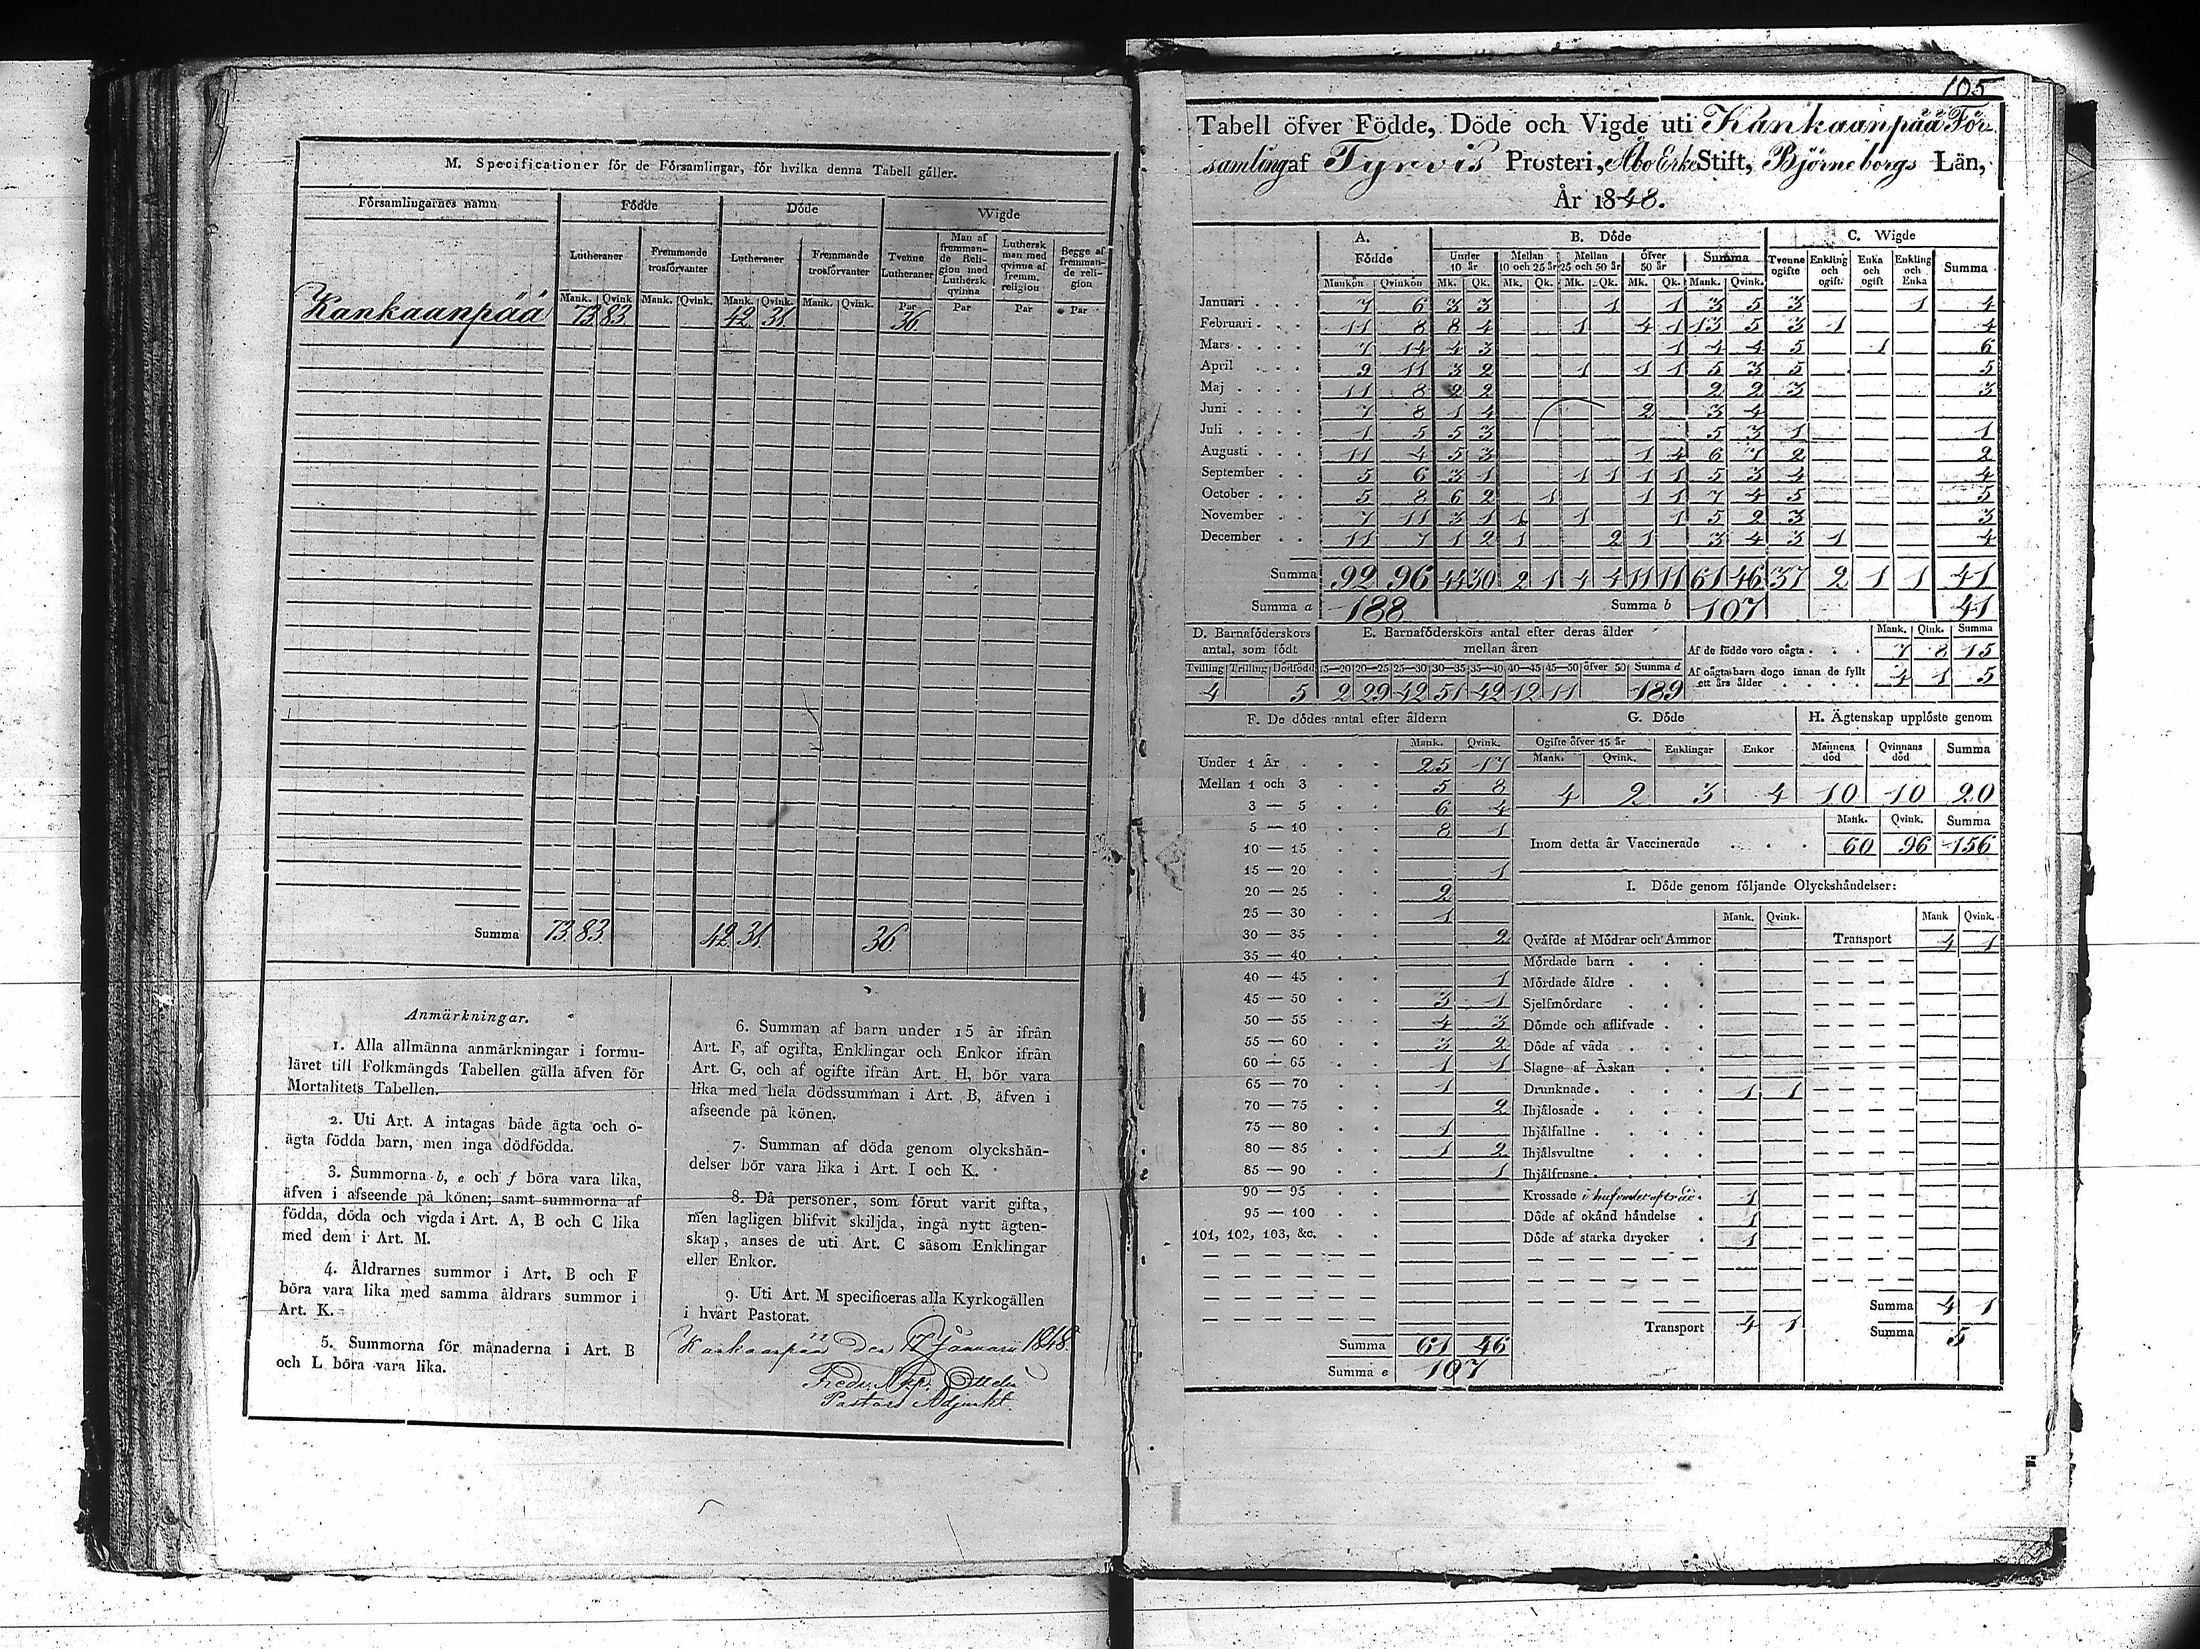 M. Specificationer för de Församlingar, för hvilka denna Tabell gäller.
Församlingarnes namn | Födde | Döde | Wigde
Lutheraner | Fremmande trosförvanter | Lutheraner | Fremmande trosförvanter | Tvenne Lutheraner | Man af fremmande Religion med Luthersk qvinna | Luthersk man med qvinna af fremm. religion | Begge af fremmande religion
Mank. | Qvink | Mank. | Qvink. | Mank. | Qvink. | Mank. | Qvink. | Par | Par | Par | Par
Kankaanpää 73 83 42 31 36
Summa 73 83 42 31 36
Anmärkningar.
1. Alla allmänna anmärkningar i formu-
läret till Folkmängds Tabellen gälla äfven för
Mortalitets Tabellen.
2. Uti Art. A intagas både ägta och o-
ägta födda barn, men inga dödfödda.
3. Summorna b, e och f böra vara lika,
äfven i afseende på könen; samt summorna af
födda, döda och vigda i Art. A, B och C lika
med dem i Art. M.
4. Åldrarnes summor i Art. B och F
böra vara lika med samma åldrars summor i
Art. K.
5. Summorna för månaderna i Art. B
och L böra vara lika.
6. Summan af barn under 15 år ifrån
Art. F, af ogifta, Enklingar och Enkor ifrån
Art. G, och af ogifte ifrån Art. H, bör vara
lika med hela dödssumman i Art. B, äfven i
afseende på könen.
7. Summan af döda genom olyckshän-
delser bör vara lika i Art. I och K.
8. Då personer, som förut varit gifta,
men lagligen blifvit skiljda, ingå nytt ägten-
skap, anses de uti Art. C såsom Enklingar
eller Enkor.
9. Uti Art. M specificeras alla Kyrkogällen
i hvart Pastorat.
Kankaanpää den 17 Januarii 1848.
Fredr.
Pastors Adjunkt.
105
Tabell öfver Födde, Döde och Vigde uti Kankaanpää För-
samling af Tyrvis Prosteri, Åbo Erke Stift, Björneborgs Län,
År 1848.
A. Födde | B. Döde | C. Wigde
Under 10 år | Mellan 10 och 25 år | Mellan 25 och 50 år | Öfver 50 år | Summa | Tvenne ogifte | Enkling och ogift. | Enka och ogift | Enkling och Enka | Summa
Mankön | Qvinkön | Mk. | Qk. | Mk. | Qk. | Mk. | Qk. | Mk. | Qk. | Mank. | Qvink.
Januari . . . 7 6 3 3 1 1 3 5 3 1 4
Februari . . . 11 8 8 4 1 4 1 13 5 3 1 4
Mars . . . . 7 14 4 3 1 4 4 5 1 6
April . . . 9 11 3 2 1 1 1 5 3 5 5
Maj . . . . 11 8 2 2 2 2 3 3
Juni . . . . 7 8 1 4 2 3 4
Juli . . . . 1 5 5 3 5 3 1 1
Augusti . . . 11 4 5 3 1 4 6 7 2 2
September . . 5 6 3 1 1 1 1 1 5 3 4 4
October . . . 5 8 6 2 1 1 1 7 4 5 5
November . . 7 11 3 1 1 1 1 5 2 3 3
December . . 11 7 1 2 1 2 1 3 4 3 1 4
Summa 92 96 44 30 2 1 4 4 11 11 61 46 37 2 1 1 41
Summa a 188 Summa b 107 41
D. Barnaföderskors antal, som födt | E. Barnaföderskors antal efter deras ålder mellan åren | Mank. | Qink. | Summa
Af de födde voro oägta . . . 7 8 15
Tvilling | Trilling | Dödfödd | 15—20 | 20—25 | 25—30 | 30—35 | 35—40 | 40—45 | 45—50 | öfver 50 | Summa d
4 5 2 29 42 51 42 12 11 189
Af oägta barn dogo innan de fyllt ett års ålder . . . . 4 1 5
F. De dödes antal efter åldern | G. Döde | H. Ägtenskap upplöste genom
Mank. | Qvink. | Ogifte öfver 15 år Mank. | Qvink. | Enklingar | Enkor | Mannens död | Qvinnans död | Summa
4 2 3 4 10 10 20
Under 1 År . . . 25 17
Mellan 1 och 3 . . 5 8
3 — 5 . . 6 4
5 — 10 . . 8 1
10 — 15 . .
15 — 20 . . 1
20 — 25 . . 2
25 — 30 . . 1
30 — 35 . . 2
35 — 40 . .
40 — 45 . . 1
45 — 50 . . 3 1
50 — 55 . . 4 3
55 — 60 . . 3 2
60 — 65 . . 1 1
65 — 70 . . 1
70 — 75 . . 2
75 — 80 . . 1
80 — 85 . . 1 2
85 — 90 . . 1
90 — 95 . .
95 — 100 . .
101, 102, 103, &c. . .
Summa 61 46
Summa e 107
Mank. | Qvink. | Summa
Inom detta år Vaccinerade . . . . 60 96 156
I. Döde genom följande Olyckshändelser:
Mank. | Qvink. | Mank | Qvink.
Qväfde af Mödrar och Ammor | Transport 4 1
Mördade barn . . .
Mördade äldre . . .
Sjelfmördare . . .
Dömde och aflifvade . .
Döde af våda . . .
Slagne af Åskan . .
Drunknade . . . . 1 1
Ihjälosade . . . .
Ihjälfallne . . . .
Ihjälsvultne . . .
Ihjälfrusne . . . .
Krossade i hufvudet af träd. 1
Döde af okänd händelse . 1
Döde af starka drycker . 1
Summa 4 1
Transport 4 1
Summa 5